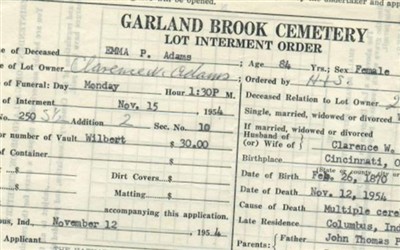 will be opened.
undertaker and app
GARLAND BROOK CEMETERY
LOT INTERMENT ORDER
e of Deceased EMMA P. Adams ; Age 84 Yrs.; Sex Female
e of Lot Owner Clarence W. Adams ; Ordered by
of Funeral: Day Monday Hour 1:30P M. Deceased Relation to Lot Owner
of Interment Nov. 15 1954 Single, married, widowed or divorced
No. 250 Addition 2 Sec. No. 10 If married, widowed or divorced
Husband of
or number of Vault Wilbert $ 30.00 (or) Wife of Clarence W.
of Container $ Birthplace Cincinnati, O
Dirt Covers $ Date of Birth Feb. 26, 1870
Matting $ Date of Death Nov. 12, 1954
accompanying this application. Cause of Death Multiple cere
bus, Ind., November 12 195 4 Late Residence Columbus, Ind
Applicant Parents: Father John Thomas